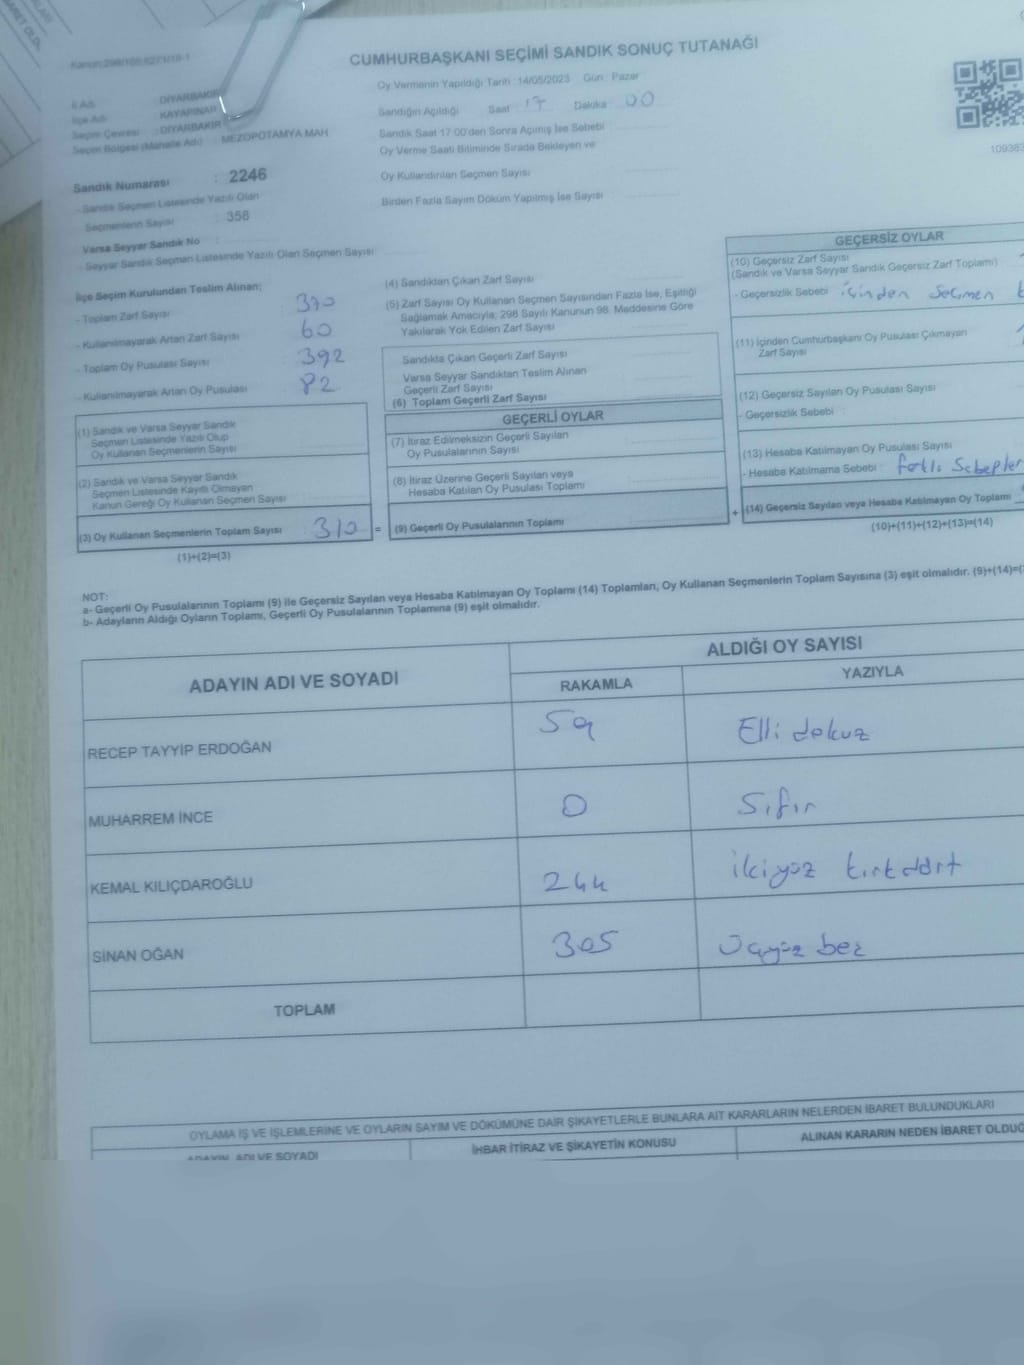 CUMHURBAŞKANI SEÇİMİ SANDIK SONUÇ TUTANAĞI
Oy Vermenin Yapıldığı Tarih : 14/05/2023 Gün : Pazar
İl Adı : DİYARBAKIR
İlçe Adı : KAYAPINAR
Seçim Çevresi : DİYARBAKIR
Seçim Bölgesi (Mahalle Adı) : MEZOPOTAMYA MAH.
Sandığın Açıldığı Saat 17 Dakika 00
Sandık Saat 17:00'den Sonra Açılmış İse Sebebi
Oy Verme Saati Bitiminde Sırada Bekleyen ve
Oy Kullandırılan Seçmen Sayısı
Birden Fazla Sayım Döküm Yapılmış İse Sayısı
109383
Sandık Numarası : 2246
- Sandık Seçmen Listesinde Yazılı Olan
Seçmenlerin Sayısı : 358
Varsa Seyyar Sandık No :
- Seyyar Sandık Seçmen Listesinde Yazılı Olan Seçmen Sayısı:
İlçe Seçim Kurulundan Teslim Alınan;
- Toplam Zarf Sayısı 370
- Kullanılmayarak Artan Zarf Sayısı 60
- Toplam Oy Pusulası Sayısı 392
- Kullanılmayarak Artan Oy Pusulası 82
(1) Sandık ve Varsa Seyyar Sandık
Seçmen Listesinde Yazılı Olup
Oy Kullanan Seçmenlerin Sayısı
(2) Sandık ve Varsa Seyyar Sandık
Seçmen Listesinde Kayıtlı Olmayan
Kanun Gereği Oy Kullanan Seçmen Sayısı
(3) Oy Kullanan Seçmenlerin Toplam Sayısı 310 =
(1)+(2)=(3)
(4) Sandıktan Çıkan Zarf Sayısı
(5) Zarf Sayısı Oy Kullanan Seçmen Sayısından Fazla İse, Eşitliği
Sağlamak Amacıyla; 298 Sayılı Kanunun 98. Maddesine Göre
Yakılarak Yok Edilen Zarf Sayısı
Sandıkta Çıkan Geçerli Zarf Sayısı
Varsa Seyyar Sandıktan Teslim Alınan
Geçerli Zarf Sayısı
(6) Toplam Geçerli Zarf Sayısı
GEÇERLİ OYLAR
(7) İtiraz Edilmeksizin Geçerli Sayılan
Oy Pusulalarının Sayısı
(8) İtiraz Üzerine Geçerli Sayılan veya
Hesaba Katılan Oy Pusulası Toplamı
(9) Geçerli Oy Pusulalarının Toplamı +
GEÇERSİZ OYLAR
(10) Geçersiz Zarf Sayısı
(Sandık ve Varsa Seyyar Sandık Geçersiz Zarf Toplamı)
- Geçersizlik Sebebi : içinden seçmen
(11) İçinden Cumhurbaşkanı Oy Pusulası Çıkmayan
Zarf Sayısı
(12) Geçersiz Sayılan Oy Pusulası Sayısı
- Geçersizlik Sebebi :
(13) Hesaba Katılmayan Oy Pusulası Sayısı
- Hesaba Katılmama Sebebi : farklı Sebepler
(14) Geçersiz Sayılan veya Hesaba Katılmayan Oy Toplamı
(10)+(11)+(12)+(13)=(14)
NOT:
a- Geçerli Oy Pusulalarının Toplamı (9) ile Geçersiz Sayılan veya Hesaba Katılmayan Oy Toplamı (14) Toplamları, Oy Kullanan Seçmenlerin Toplam Sayısına (3) eşit olmalıdır. (9)+(14)=(
b- Adayların Aldığı Oyların Toplamı, Geçerli Oy Pusulalarının Toplamına (9) eşit olmalıdır.
ADAYIN ADI VE SOYADI
ALDIĞI OY SAYISI
RAKAMLA YAZIYLA
RECEP TAYYİP ERDOĞAN 59 Elli dokuz
MUHARREM İNCE 0 Sıfır
KEMAL KILIÇDAROĞLU 244 ikiyüz kırkdört
SİNAN OĞAN 305 Üçyüz beş
TOPLAM
OYLAMA İŞ VE İŞLEMLERİNE VE OYLARIN SAYIM VE DÖKÜMÜNE DAİR ŞİKAYETLERLE BUNLARA AİT KARARLARIN NELERDEN İBARET BULUNDUKLARI
ADAYIN ADI VE SOYADI İHBAR İTİRAZ VE ŞİKAYETİN KONUSU ALINAN KARARIN NEDEN İBARET OLDUĞ